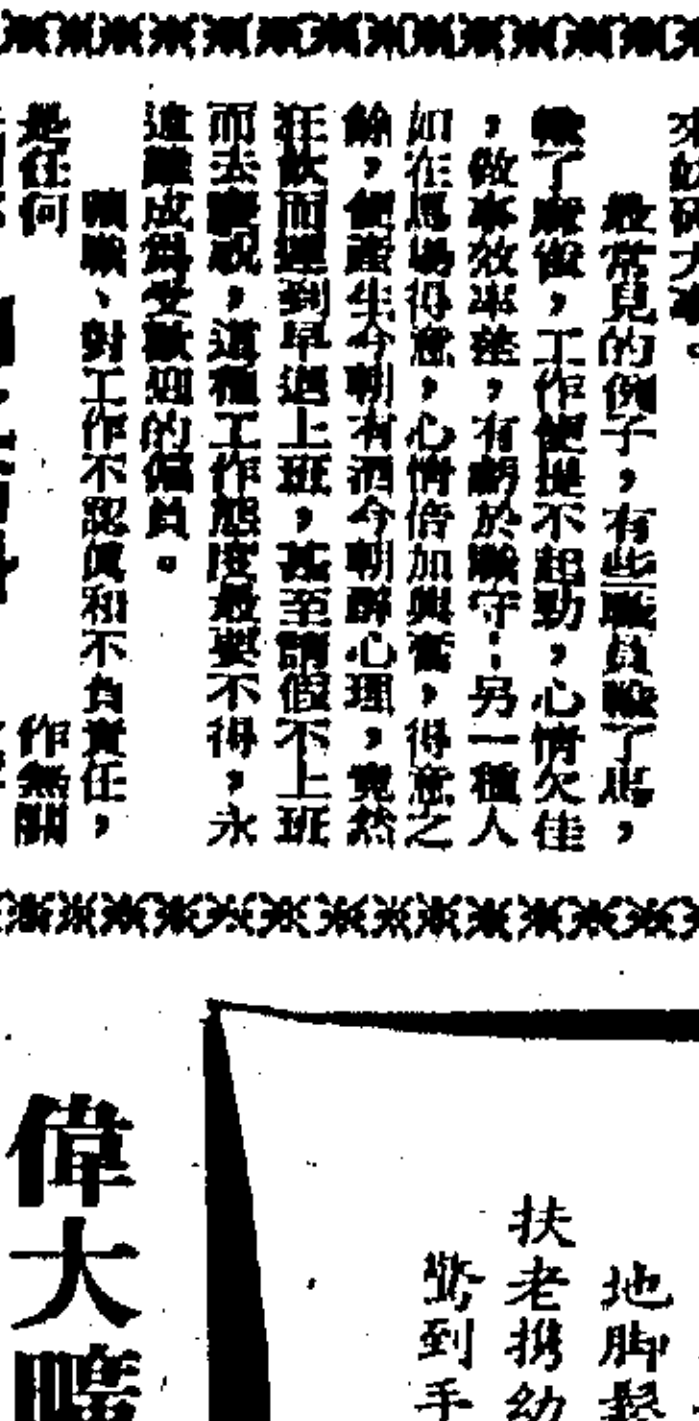 最常見的例子，有些職員輸了馬，
輸了廢假，工作便提不起勁，心情欠佳
，做事效率差，有虧於職守；另一種人
如在馬場得意，心情倍加興奮，得意之
餘，便產生今朝有酒今朝醉心理，竟然
狂飲而遲到早退上班，甚至請假不上班
而去慶祝，這種工作態度最要不得，永
遠難成爲受歡迎的僱員。
曠職、對工作不認眞和不負責任，
是任何
作無關
地脚鬆
扶老携幼
到手
偉大